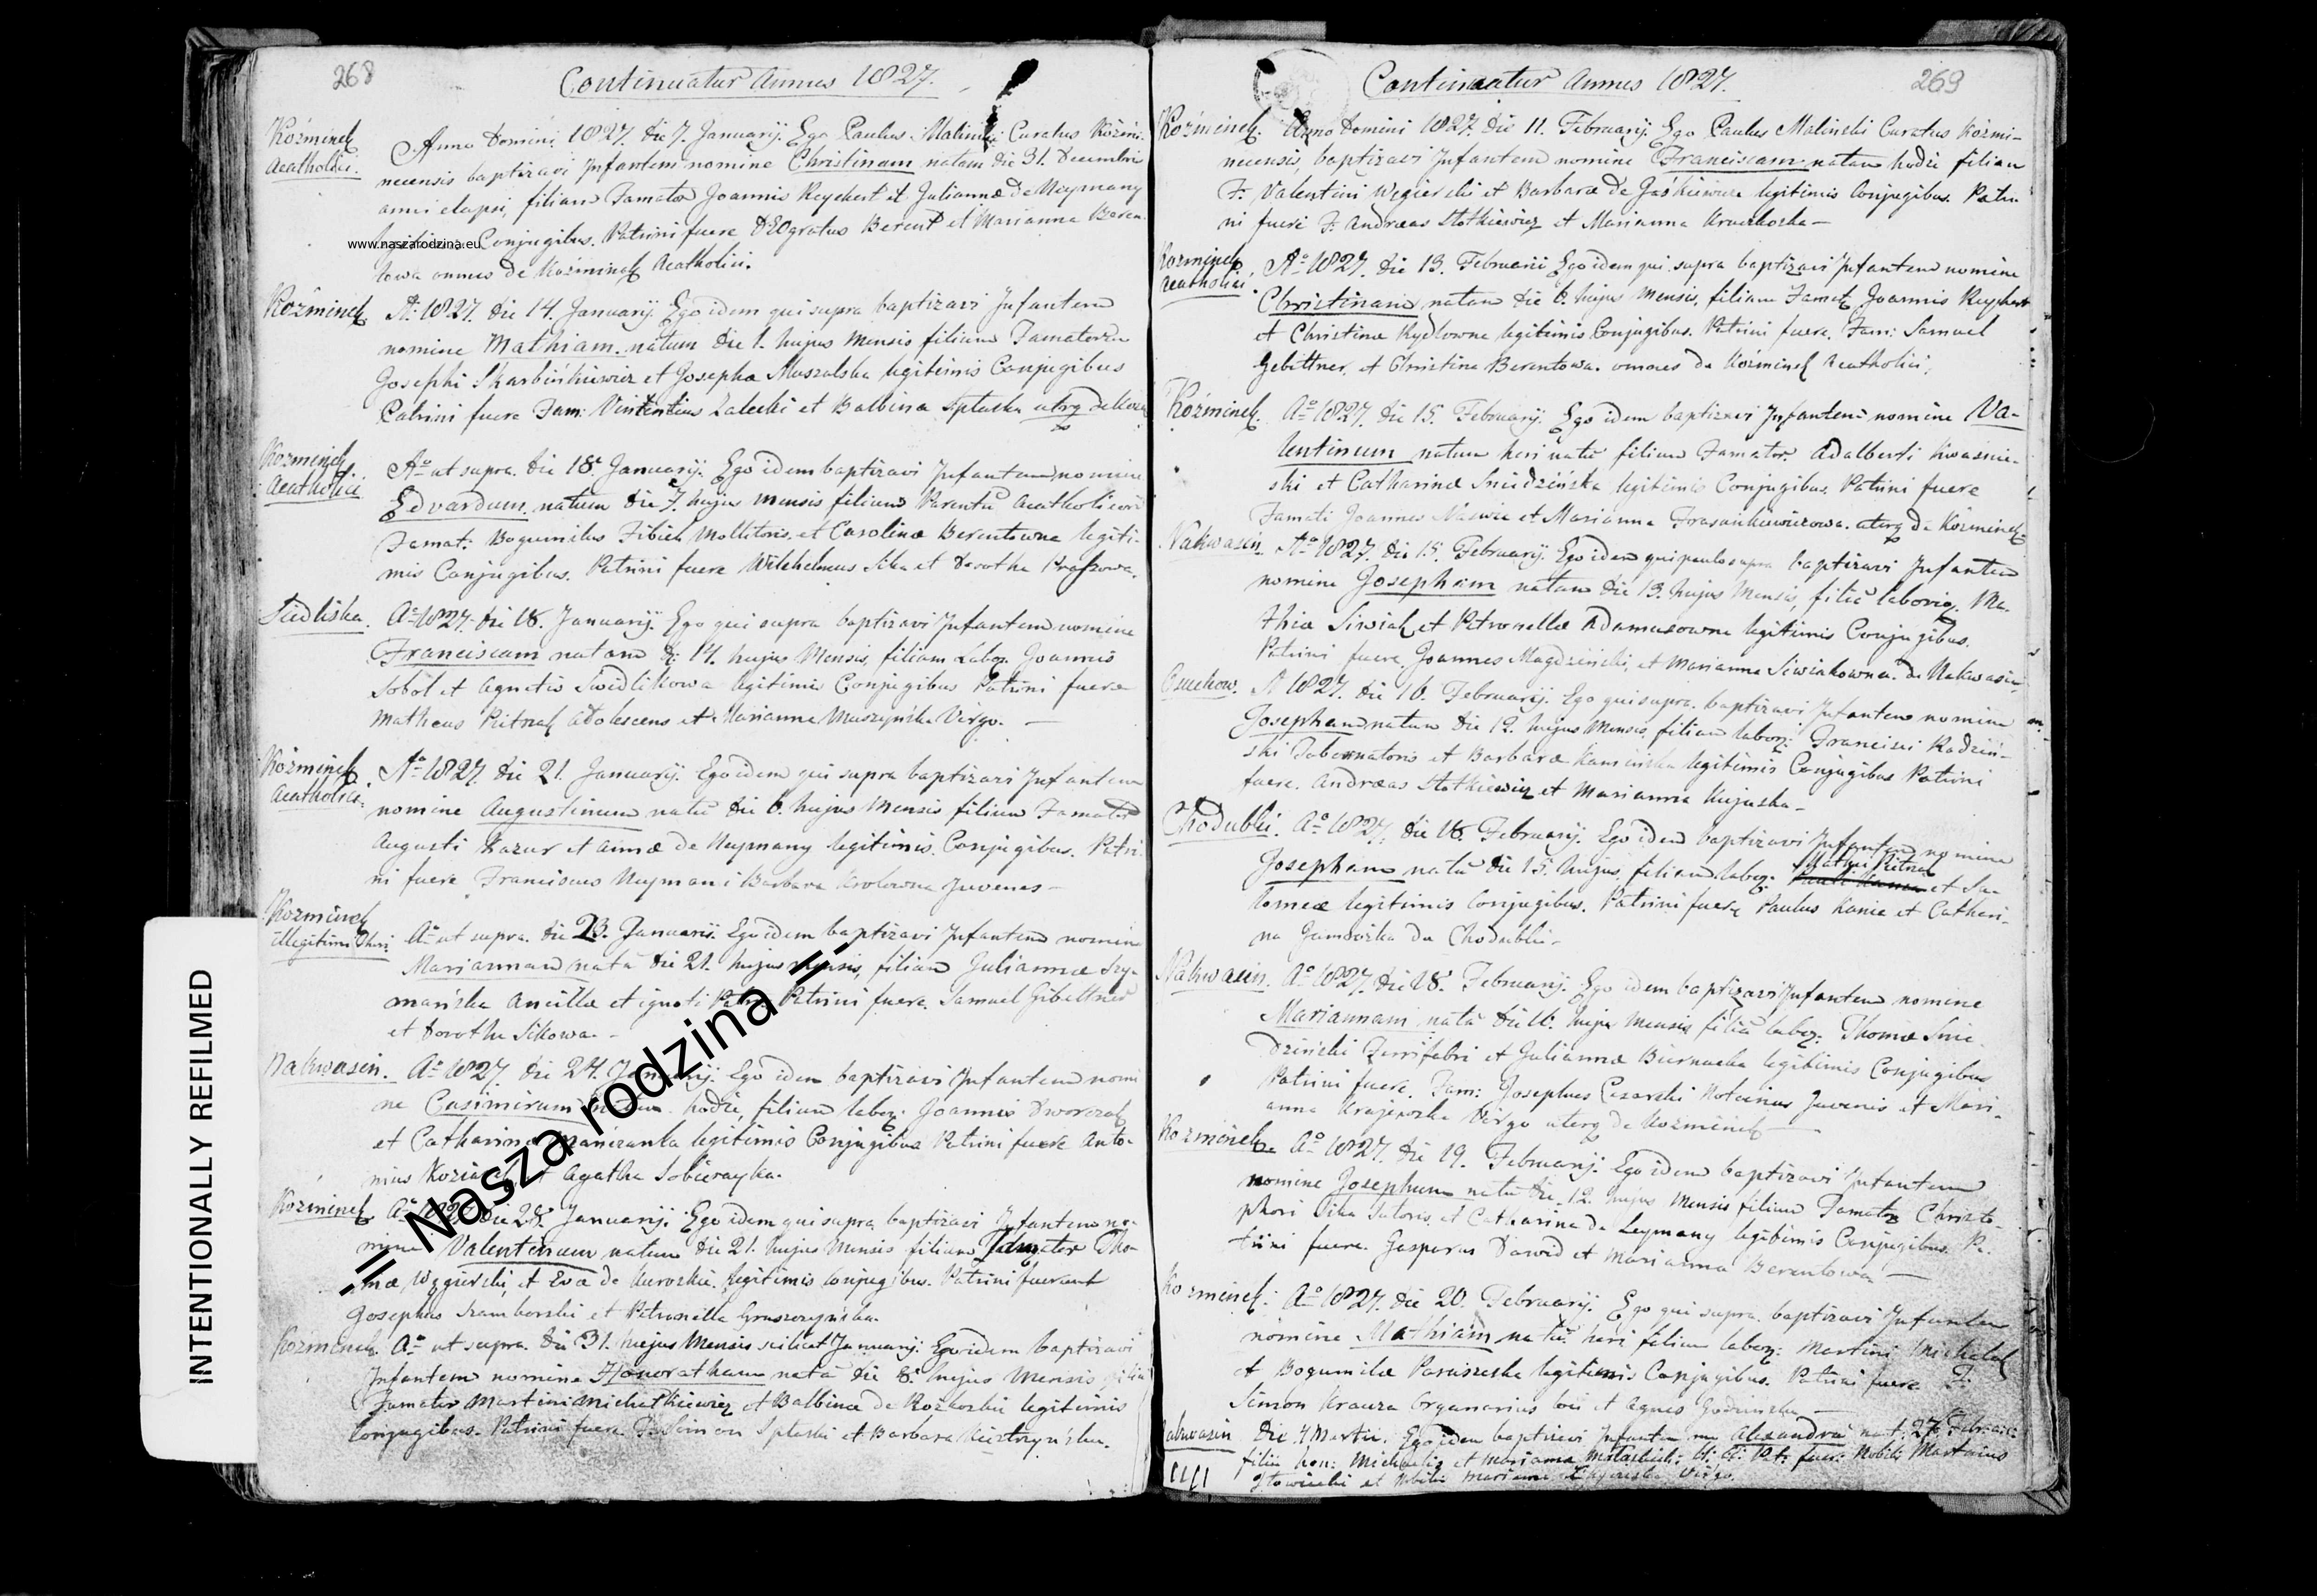 268
Continuatur Annus 1827.
Koźminek
Acatholici.
Anno Domini 1827. die 7. Januarij. Ego Paulus Malinski Curatus Koźmi-
necensis baptizavi Infantem nomine Christinam natam die 31. Decembris
anni elapsi, filiam Famator Joannis Reychert et Julianna de Neymany
Conjugibus. Patrini fuere DEOgratus Berent et Marianna Beren-
towa omnes de Koźminek Acatholici.
www.naszarodzina.eu
Koźminek
A: 1827. die 14. Januarij. Ego idem qui supra baptizavi Infantem
nomine Mathiam natum die 1. hujus Mensis filium Famatorum
Josephi Skarbińkiewicz et Josepha Muszalska legitimis Conjugibus
Patrini fuere Fam: Vincentius Zalecki et Balbina Splaska utrq de
Koźminek
Acatholici
Aº ut supra. die 18. Januarij. Ego idem baptizavi Infantem nomine
Edvardum natum die 7. hujus Mensis filium Parentū Acatholicorū
Famat: Bogumilus Fibich Mollitoris et Carolina Berentowne legiti-
mis Conjugibus. Patrini fuere Wilhelmus Sika et Dorotha
Siedliska.
Aº 1827. die 18. Januarij. Ego qui supra baptizavi Infantem nomine
Franciscam natam d: 14. hujus Mensis, filiam Labor. Joannis
Sobol et Agnetis Swidlikowa legitimis Conjugibus Patrini fuere
Matheus Pietrzak Adolescens et Marianna Muszyńska Virgo.
Koźminek
Acatholici.
Aº 1827. die 21. Januarij. Ego idem qui supra baptizavi Infantem
nomine Augustinum natū die 6. hujus Mensis filium Famator
Augusti Kazur et Anna de Neymany legitimis Conjugibus. Patri-
ni fuere Franciscus Neyman i Barbara Krolowna Juvenes
Koźminek
illegitimi Thori
Aº ut supra. die 23. Januarij. Ego idem baptizavi Infantem nomine
Mariannam natā die 21. hujus Mensis, filiam Julianna Szy-
mańska Ancilla et ignoti Patris Patrini fuere Samuel Gibettner
et Dorotha Sikowa.
Nakwasin.
Aº 1827. die 24. Januarij. Ego idem baptizavi Infantem nomi-
ne Casimirum natum hodie, filium labor: Joannis Dworczak
et Catharina legitimis Conjugibus Patrini fuere Anto-
nius et Agatha Sobierayka.
Koźminek
Aº 1827. die 28. Januarij. Ego idem qui supra baptizavi Infantem no-
mine Valentinum natum die 21. hujus Mensis filium Famator Tho-
ma Węgierski, et Eva de Kuroskie legitimis Conjugibus. Patrini fuerunt
Josephus Szamborski et Petronella Gruszczyńska.
Koźminek.
Aº ut supra. die 31. hujus Mensis scilicet Januarij. Ego idem baptizavi
Infantem nomine Honoratham natā die 8. hujus Mensis
Famator Martini Michałkiewicz et Balbina de legitimis
Conjugibus. Patrini fuere F. Simon Splaski et Barbara
=- Nasza rodzina -=
INTENTIONALLY REFILMED
269
Continuatur Annus 1827.
Koźminek.
Anno Domini 1827. die 11. Februarij. Ego Paulus Malinski Curatus Koźmi-
necensis, baptizavi Infantem nomine Franciscam natam hodie filiam
F. Valentini Węgierski et Barbara de Jaśkiewicze legitimis Conjugibus. Patri-
ni fuere F. Andraeas Stotkiewicz et Marianna
Koźminek
Acatholici.
Aº 1827. die 13. Februarii Ego idem qui supra baptizavi Infantem nomine
Christinam natam die 6. hujus Mensis, filiam Famat. Joannis Reychert
et Christina Rydlowne legitimis Conjugibus. Patrini fuere. Fam: Samuel
Gebittner, et Christina Berentowa. omnes de Koźminek Acatholici,
Koźminek.
Aº 1827. die 15. Februarij. Ego idem baptizavi Infantem nomine Va-
lentinum natum heri natū filium Famator. Adalberti Kwasnie-
ski et Catharina Sniedzińska legitimis Conjugibus. Patrini fuere
Famati Joannes et Marianna uterq de Koźminek.
Nakwasin.
Aº 1827. die 15. Februarij. Ego idem qui paulo supra baptizavi Infantem
nomine Josepham natam die 13. hujus Mensis, filiā laborioz. Ma-
thia Siwiak et Petronella Adamusowne legitimis Conjugibus.
Patrini fuere Joannes Magdziński, et Marianna Siwiakowna. de Nakwasin.
Osuchow.
A 1827. die 16. Februarij. Ego qui supra baptizavi Infantem nomine
Josepham natam die 12. hujus Mensis, filiam labor: Francisci Radzin-
ski Tabernatoris et Barbara Kaminska legitimis Conjugibus Patrini
fuere. Andraeas Stotkiewicz et Marianna Kujaska
Chodubki.
Aº 1827. die 18. Februarij. Ego idem baptizavi Infantem nomine
Josepham natā die 15. hujus, filiam labor. Mathei Pietrzak et Sa-
lomea legitimis Conjugibus. Patrini fuere Paulus Kania et Cathari-
na de Chodubki.
Nakwasin.
Aº 1827. die 18. Februarij. Ego idem baptizavi Infantem nomine
Mariannam natā die 16. hujus Mensis filiā labor: Thoma Snie-
dziński Ferrifabri et Julianna Biernacka legitimis Conjugibus
Patrini fuere. Fam: Josephus Cesarski Notarius Juvenis et Mari-
anna Krajewska Virgo uterq de Koźminek
Koźminek
Aº 1827. die 19. Februarij. Ego idem baptizavi Infantem
nomine Josephum natū die 12. hujus Mensis filium Famator Christo-
phori Sika Sutoris, et Catharina de Leymany legitimis Conjugibus. Pa-
trini fuere. Gasparus Dawid et Marianna Berentowa
Koźminek.
Aº 1827. die 20. Februarij. Ego qui supra. baptizavi Infantem
nomine Mathiam natū heri filium labor: Martini Michalak
et Bogumila Paruszeska legitimis Conjugibus. Patrini fuere F.
Simon Krauza Organarius loci et Agnes Godzinska
Nakwasin
Die 4 Martii. Ego idem baptizavi Infantem nne Alexandrā nat. 27 Februarii
filiā hon: Michaelis et Marianna Pat: fuer: Nobilis Martinus
et Nobilis Marianna Virgo.